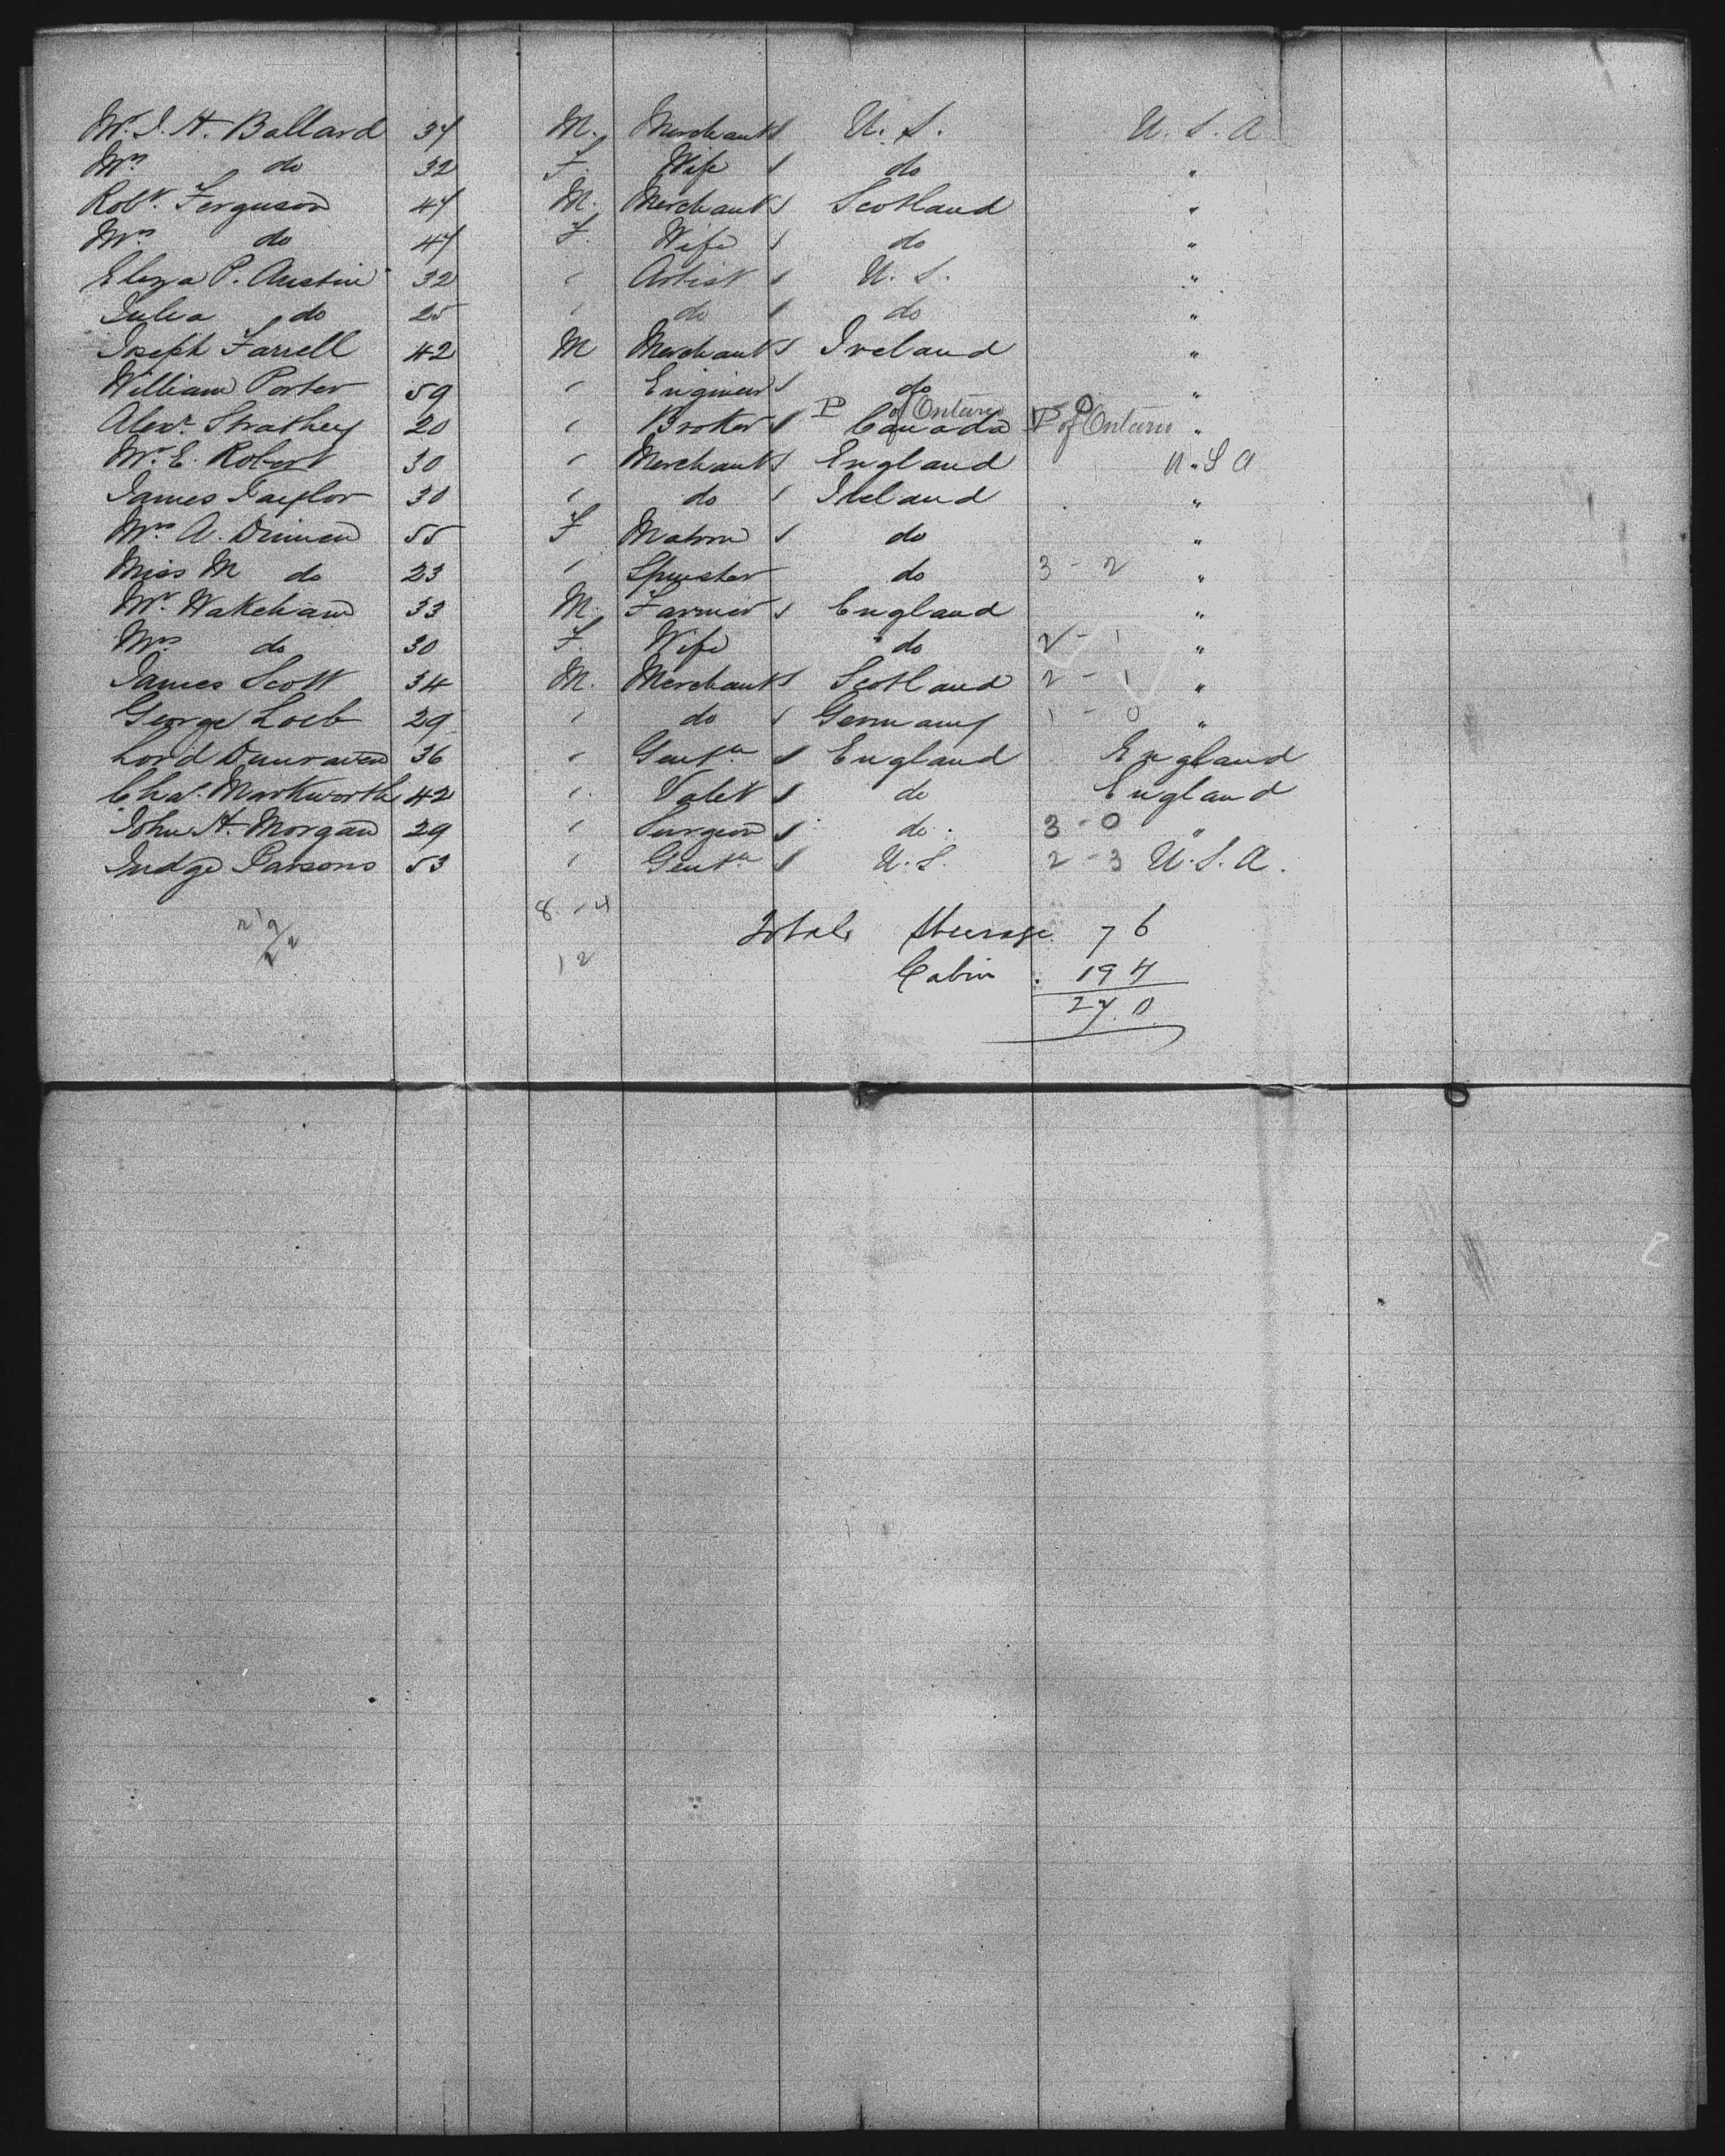 Mr. J. H. Ballard 37 M. Merchant U. S. U. S. A
Mrs do 32 F. Wife do "
Robt. Ferguson 47 M. Merchant Scotland "
Mrs do 47 F. Wife do "
Eliza P. Austin 32 " Artist U. S. "
Julia do 25 " do do "
Joseph Farrell 42 M Merchant Ireland "
William Porter 59 " Engineer do "
P of Ontario P of Ontario
Alexr. Strathey 20 " Broker Canada "
Mr. E. Robert 30 " Merchant England U.S A
James Taylor 30 " do Ireland "
Mrs A. 55 F Matron do "
Miss M do 23 " Spinster do 3 - 2 "
Mr. Wakeham 33 M. Farmer England "
Mrs do 30 F. Wife do 2 - 1 "
James Scott 34 M. Merchant Scotland 2 - 1 "
George Loeb 29 " do Germany 1 - 0 "
Lord Dunraven 36 " Gentn England England
Chas. Markworth 42 " Valet do England
John H. Morgan 29 " Surgeon do. 3 - 0 "
Judge Parsons 53 " Gentn U. S. 2 - 3 U. S. A.
8 - 4
Total Steerage 76
12
Cabin 194
270